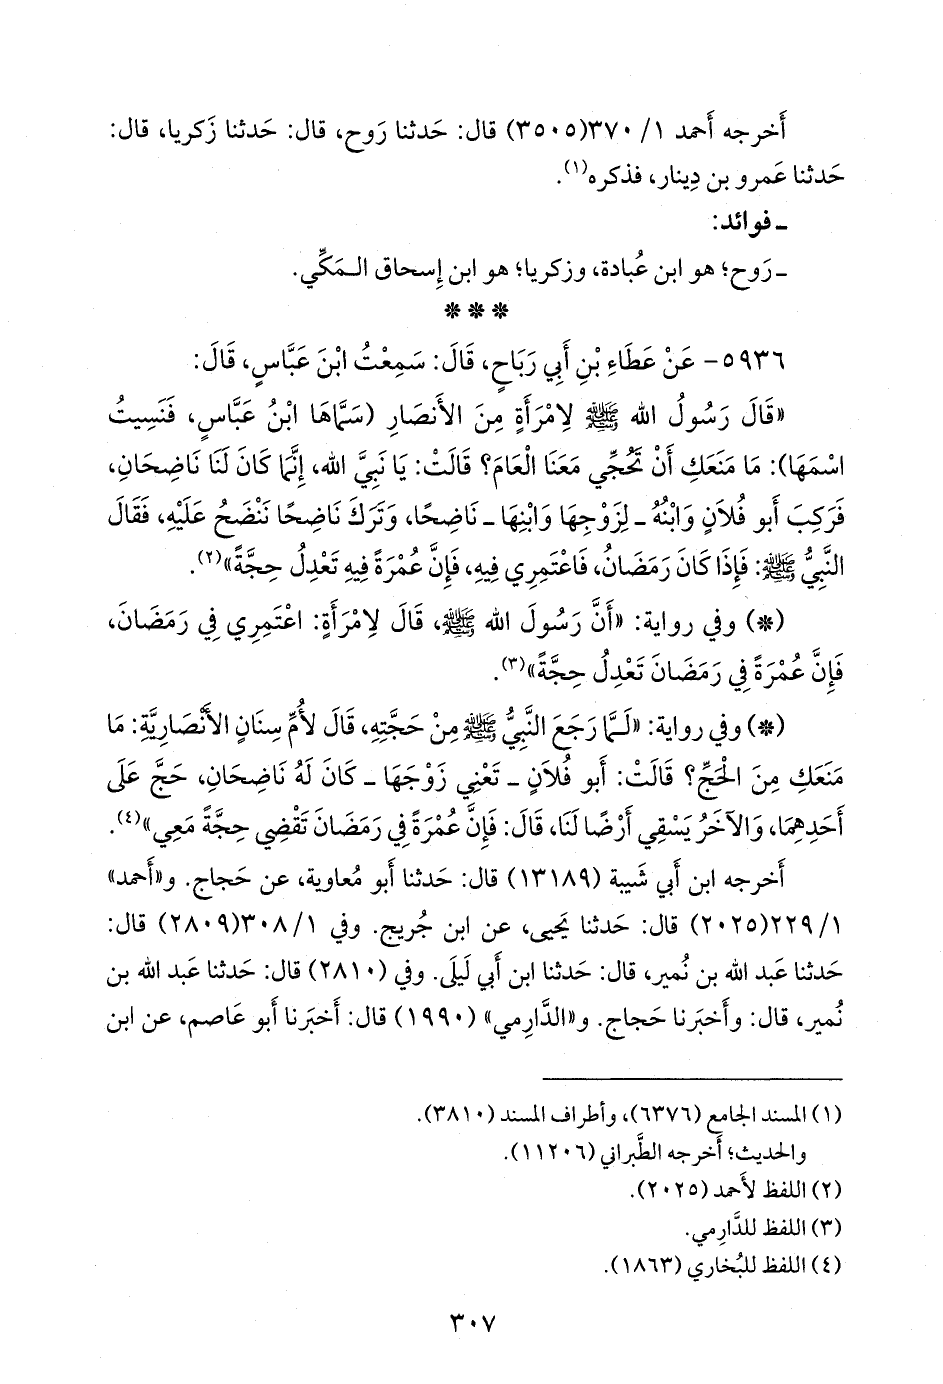 أَخرجه أَحمد ١/ ٣٧٠(٣٥٠٥) قال: حَدثنا رَوح، قال: حَدثنا زَكريا، قال:
حَدثنا عَمرو بن دِينار، فذكره(١).
ـ فوائد:
ـ رَوح؛ هو ابن عُبادة، وزكريا؛ هو ابن إِسحاق الـمَكِّي.
* * *
٥٩٣٦- عَنْ عَطَاءِ بْنِ أَبِي رَبَاحٍ، قَالَ: سَمِعْتُ ابْنَ عَبَّاسٍ، قَالَ:
«قَالَ رَسُولُ الله ﷺ لِامْرَأَةٍ مِنَ الأَنصَارِ (سَمَّاهَا ابْنُ عَبَّاسٍ، فَنَسِيتُ
اسْمَهَا): مَا مَنَعَكِ أَنْ تَحُجِّي مَعَنَا الْعَامَ؟ قَالَتْ: يَا نَبِيَّ الله، إِنَّمَا كَانَ لَنَا نَاضِحَانِ،
فَرَكِبَ أَبو فُلاَنٍ وَابْنُهُ ـ لِزَوْجِهَا وَابْنِهَا ـ نَاضِحًا، وَتَرَكَ نَاضِحًا نَنْضَحُ عَلَيْهِ، فَقَالَ
النَّبِيُّ ﷺ: فَإِذَا كَانَ رَمَضَانُ، فَاعْتَمِرِي فِيهِ، فَإِنَّ عُمْرَةً فِيهِ تَعْدِلُ حِجَّةً»(٢).
(*) وفي رواية: «أَنَّ رَسُولَ الله ﷺ، قَالَ لِامْرَأَةٍ: اعْتَمِرِي فِي رَمَضَانَ،
فَإِنَّ عُمْرَةً فِي رَمَضَانَ تَعْدِلُ حِجَّةً»(٣).
(*) وفي رواية: «لَـمَّا رَجَعَ النَّبِيُّ ﷺ مِنْ حَجَّتِهِ، قَالَ لأُمِّ سِنَانٍ الأَنْصَارِيَّةِ: مَا
مَنَعَكِ مِنَ الْحَجِّ؟ قَالَتْ: أَبو فُلاَنٍ ـ تَعْنِي زَوْجَهَا ـ كَانَ لَهُ نَاضِحَانِ، حَجَّ عَلَى
أَحَدِهِمَا، وَالآخَرُ يَسْقِي أَرْضًا لَنَا، قَالَ: فَإِنَّ عُمْرَةً فِي رَمَضَانَ تَقْضِي حِجَّةً مَعِي»(٤).
أَخرجه ابن أَبي شَيبة (١٣١٨٩) قال: حَدثنا أَبو مُعاوية، عن حَجاج. و«أَحمد»
١/ ٢٢٩(٢٠٢٥) قال: حَدثنا يَحيى، عن ابن جُريج. وفي ١/ ٣٠٨(٢٨٠٩) قال:
حَدثنا عَبد الله بن نُمير، قال: حَدثنا ابن أَبي لَيلَى. وفي (٢٨١٠) قال: حَدثنا عَبد الله بن
نُمير، قال: وأَخبرنا حَجاج. و«الدَّارِمي» (١٩٩٠) قال: أَخبَرنا أَبو عَاصم، عن ابن
(١) المسند الجامع (٦٣٧٦)، وأطراف المسند (٣٨١٠).
والحديث؛ أَخرجه الطَّبراني (١١٢٠٦).
(٢) اللفظ لأَحمد (٢٠٢٥).
(٣) اللفظ للدَّارِمي.
(٤) اللفظ للبُخاري (١٨٦٣).
٣٠٧